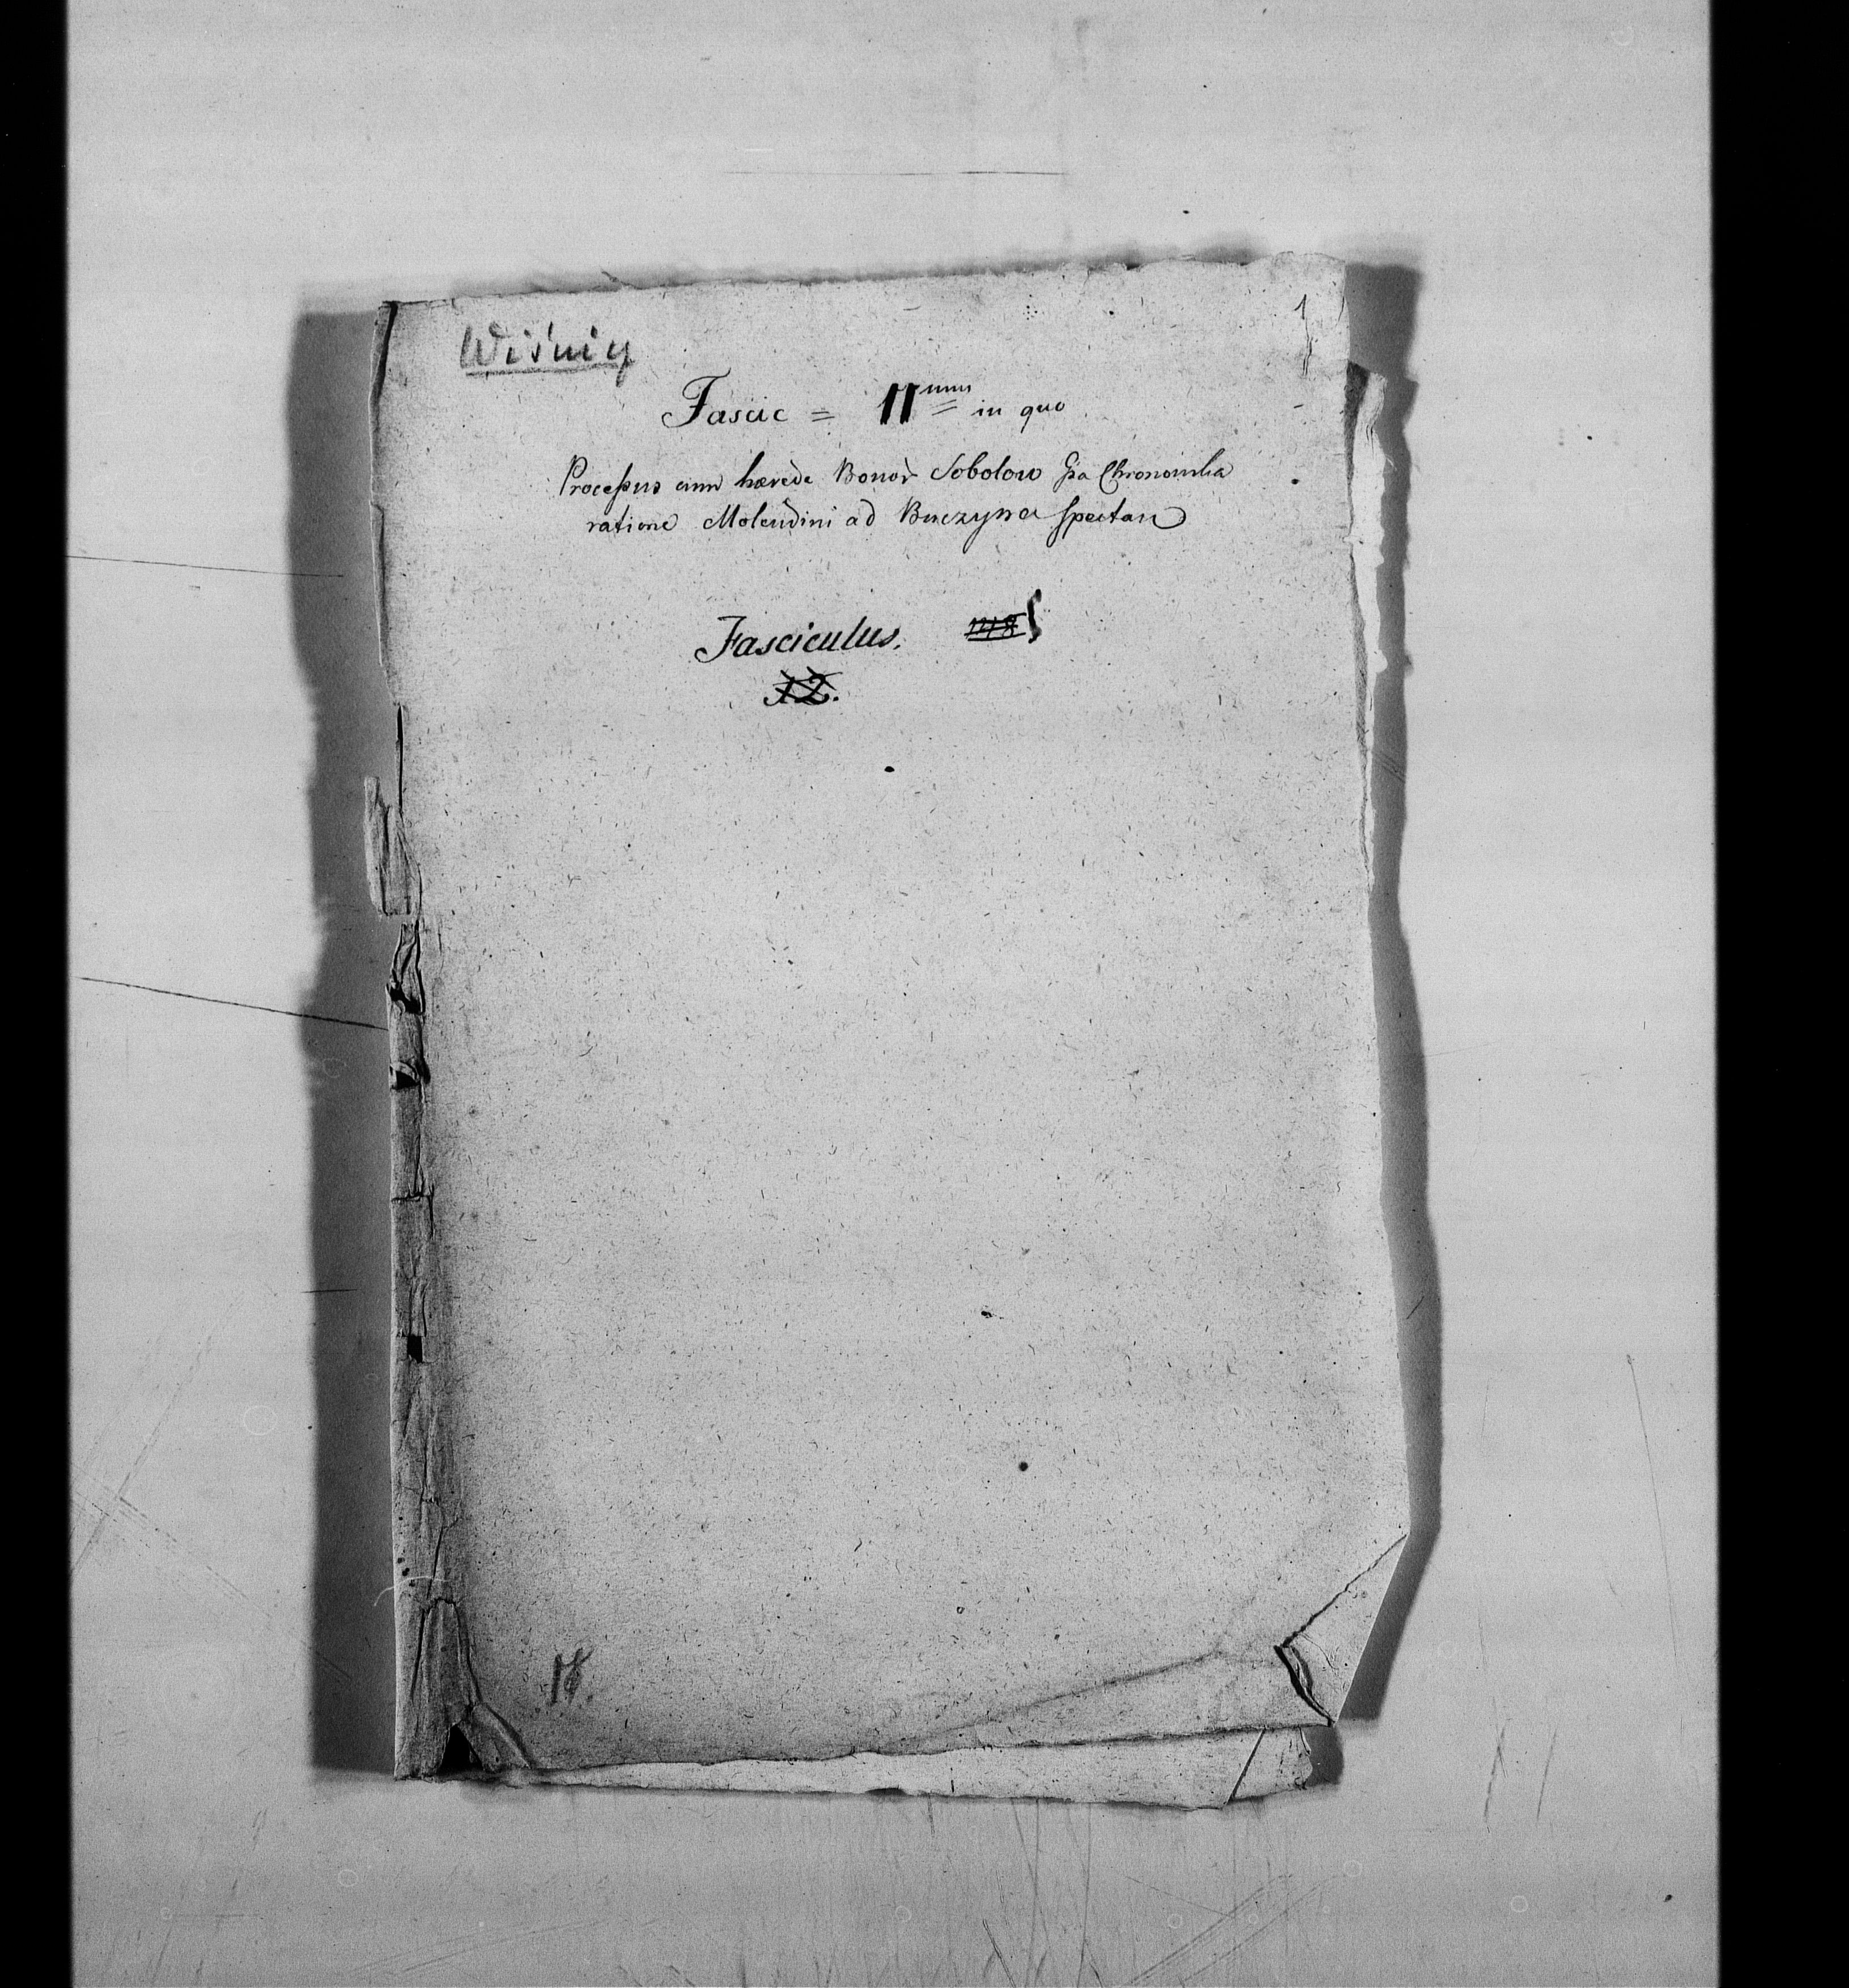 Wiśnicz
1
Fascic = II mus in quo
Processus cum hærede Bonor Sobolow Gsa Chronowska
ratione Molendini ad Buczyna spectan
Fasciculus.
12.